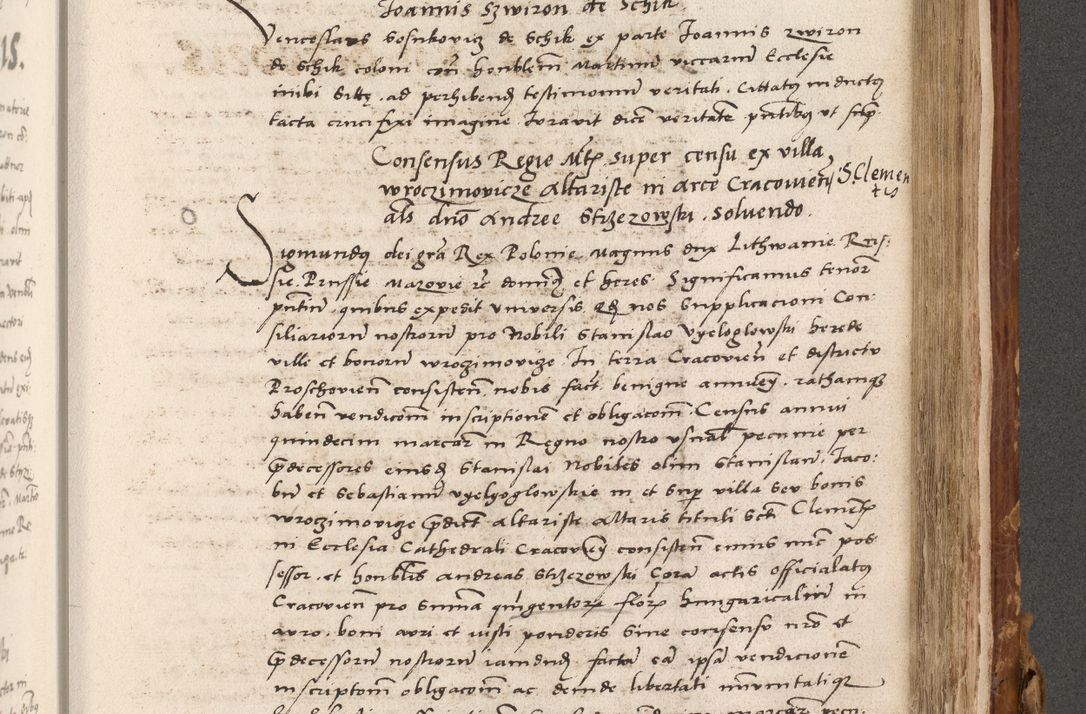 Joannis Szwiron de Schik
Venceslaus Sosnkovicz de Schik ex parte Joannis zwiron
de Schik coloni con honblem Martinum viccarium Ecclesie
inibi ad perhibend testimonium veritati. Cittatus inductus
tacta crucifixi imagine Juravit dicere veritatem pntibus ut supra
Consensus Regie Mtis super censu ex villa
wroczimovicze altariste in arce Cracovien S. Clemen
tis
als dno Andree Strzezowski solvendo.
Sigmundus dei gra Rex Polonie Magnus dux Lithwanie Rus-
sie Prussie Mazovie etc dominus et heres Significamus tenore
pntium quibus expedit universis. Qd nos Supplicacioni Con-
siliariorum nostrorum pro Nobili Stanislao Vgeloglowski herede
ville et bonorum wroczimovicze In terra Cracovien et districtu
Proschovien consisten nobis fact. benigne annuen. rathamque
haben vendicom inscriptionem et obligacom Census annui
quindecim marcarum in Regno nostro usual pecunie per
predecessores eiusd Stanislai Nobiles olim Stanislaum, Jaco-
bum et Sebastianum vgelyoglowskie in et Super villa Seu bonis
wroczimovicze predict Altariste Altaris tituli Scti Clementis
in Ecclesia Cathedrali Cracovien consisten cuius nunc pos-
sessor et honblis Andreas Strzezowski Cora actis Officialatus
Cracovien pro Summa quingentorum florenorum hungaricalium in
auro boni auri et iusti ponderis Sine consensu nro et
predecessorum nostrorum iamdud facta ea ipsa vendicionem
inscriptom obligacom ac deinde libertati immunitatique